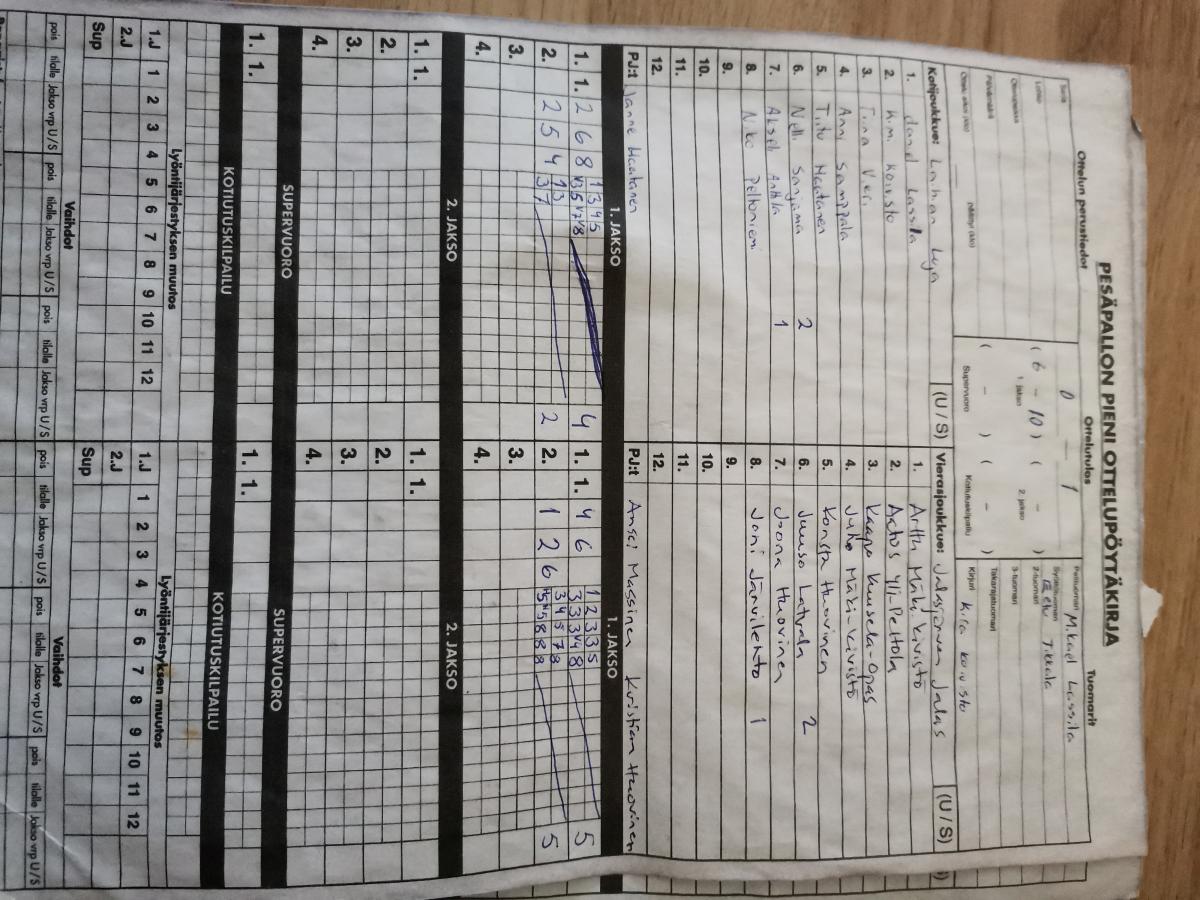 PESÄPALLON PIENI OTTELUPÖYTÄKIRJA
Ottelun perustiedot Ottelutulos Tuomarit
Sarja
Lohko
Ottelupaikka
Päivämäärä
0 - 1
( 6 - 10 ) ( - )
1. jakso 2. jakso
( - ) ( - )
Supervuoro Kotiutuskilpailu
Pelituomari Mikael Lassila
Syöttötuomari Eetu Tikkala
2-tuomari
3-tuomari
Takarajatuomari
Kirjuri Kira Koivisto
Kotijoukkue: Laihian Luja (U / S)
1. Daniel Lassila
2. Kimi Koivisto
3. Tiina Vieri
4. Anni Samppala
5. Tiitu Haatanen
6. Nelli Sarijärvi 2
7. Akseli Anttila 1
8. Niko Peltoniemi
9.
10.
11.
12.
PJ:t Janne Haatanen
Vierasjoukkue: Jalasjärven Jalas (U / S)
1. Arttu Mäki-Kivistö
2. Aatos Yli-Pettola
3. Kaapo Kuusela-Opas
4. Juho Mäki-Kivistö
5. Konsta Huovinen
6. Juuso Latvala 2
7. Joona Huovinen
8. Joni Järvilehto 1
9.
10.
11.
12.
PJ:t Anssi Massinen Kristian Huovinen
1. JAKSO 1. JAKSO
1. 1. 2 6 8 4
2. 2 5 4 2
3.
4.
1. 1. 4 6 5
2. 1 2 6 5
3.
4.
2. JAKSO 2. JAKSO
1. 1. 1. 1.
2. 2.
3. 3.
4. 4.
SUPERVUORO SUPERVUORO
1. 1. 1. 1.
KOTIUTUSKILPAILU KOTIUTUSKILPAILU
Lyöntijärjestyksen muutos Lyöntijärjestyksen muutos
1.J 1 2 3 4 5 6 7 8 9 10 11 12 1.J 1 2 3 4 5 6 7 8 9 10 11 12
2.J 2.J
Sup Sup
Vaihdot Vaihdot
pois tilalle Jakso vrp U / S pois tilalle Jakso vrp U / S pois tilalle Jakso vrp U / S pois tilalle Jakso vrp U / S pois tilalle Jakso vrp U / S pois tilalle Jakso vrp U / S